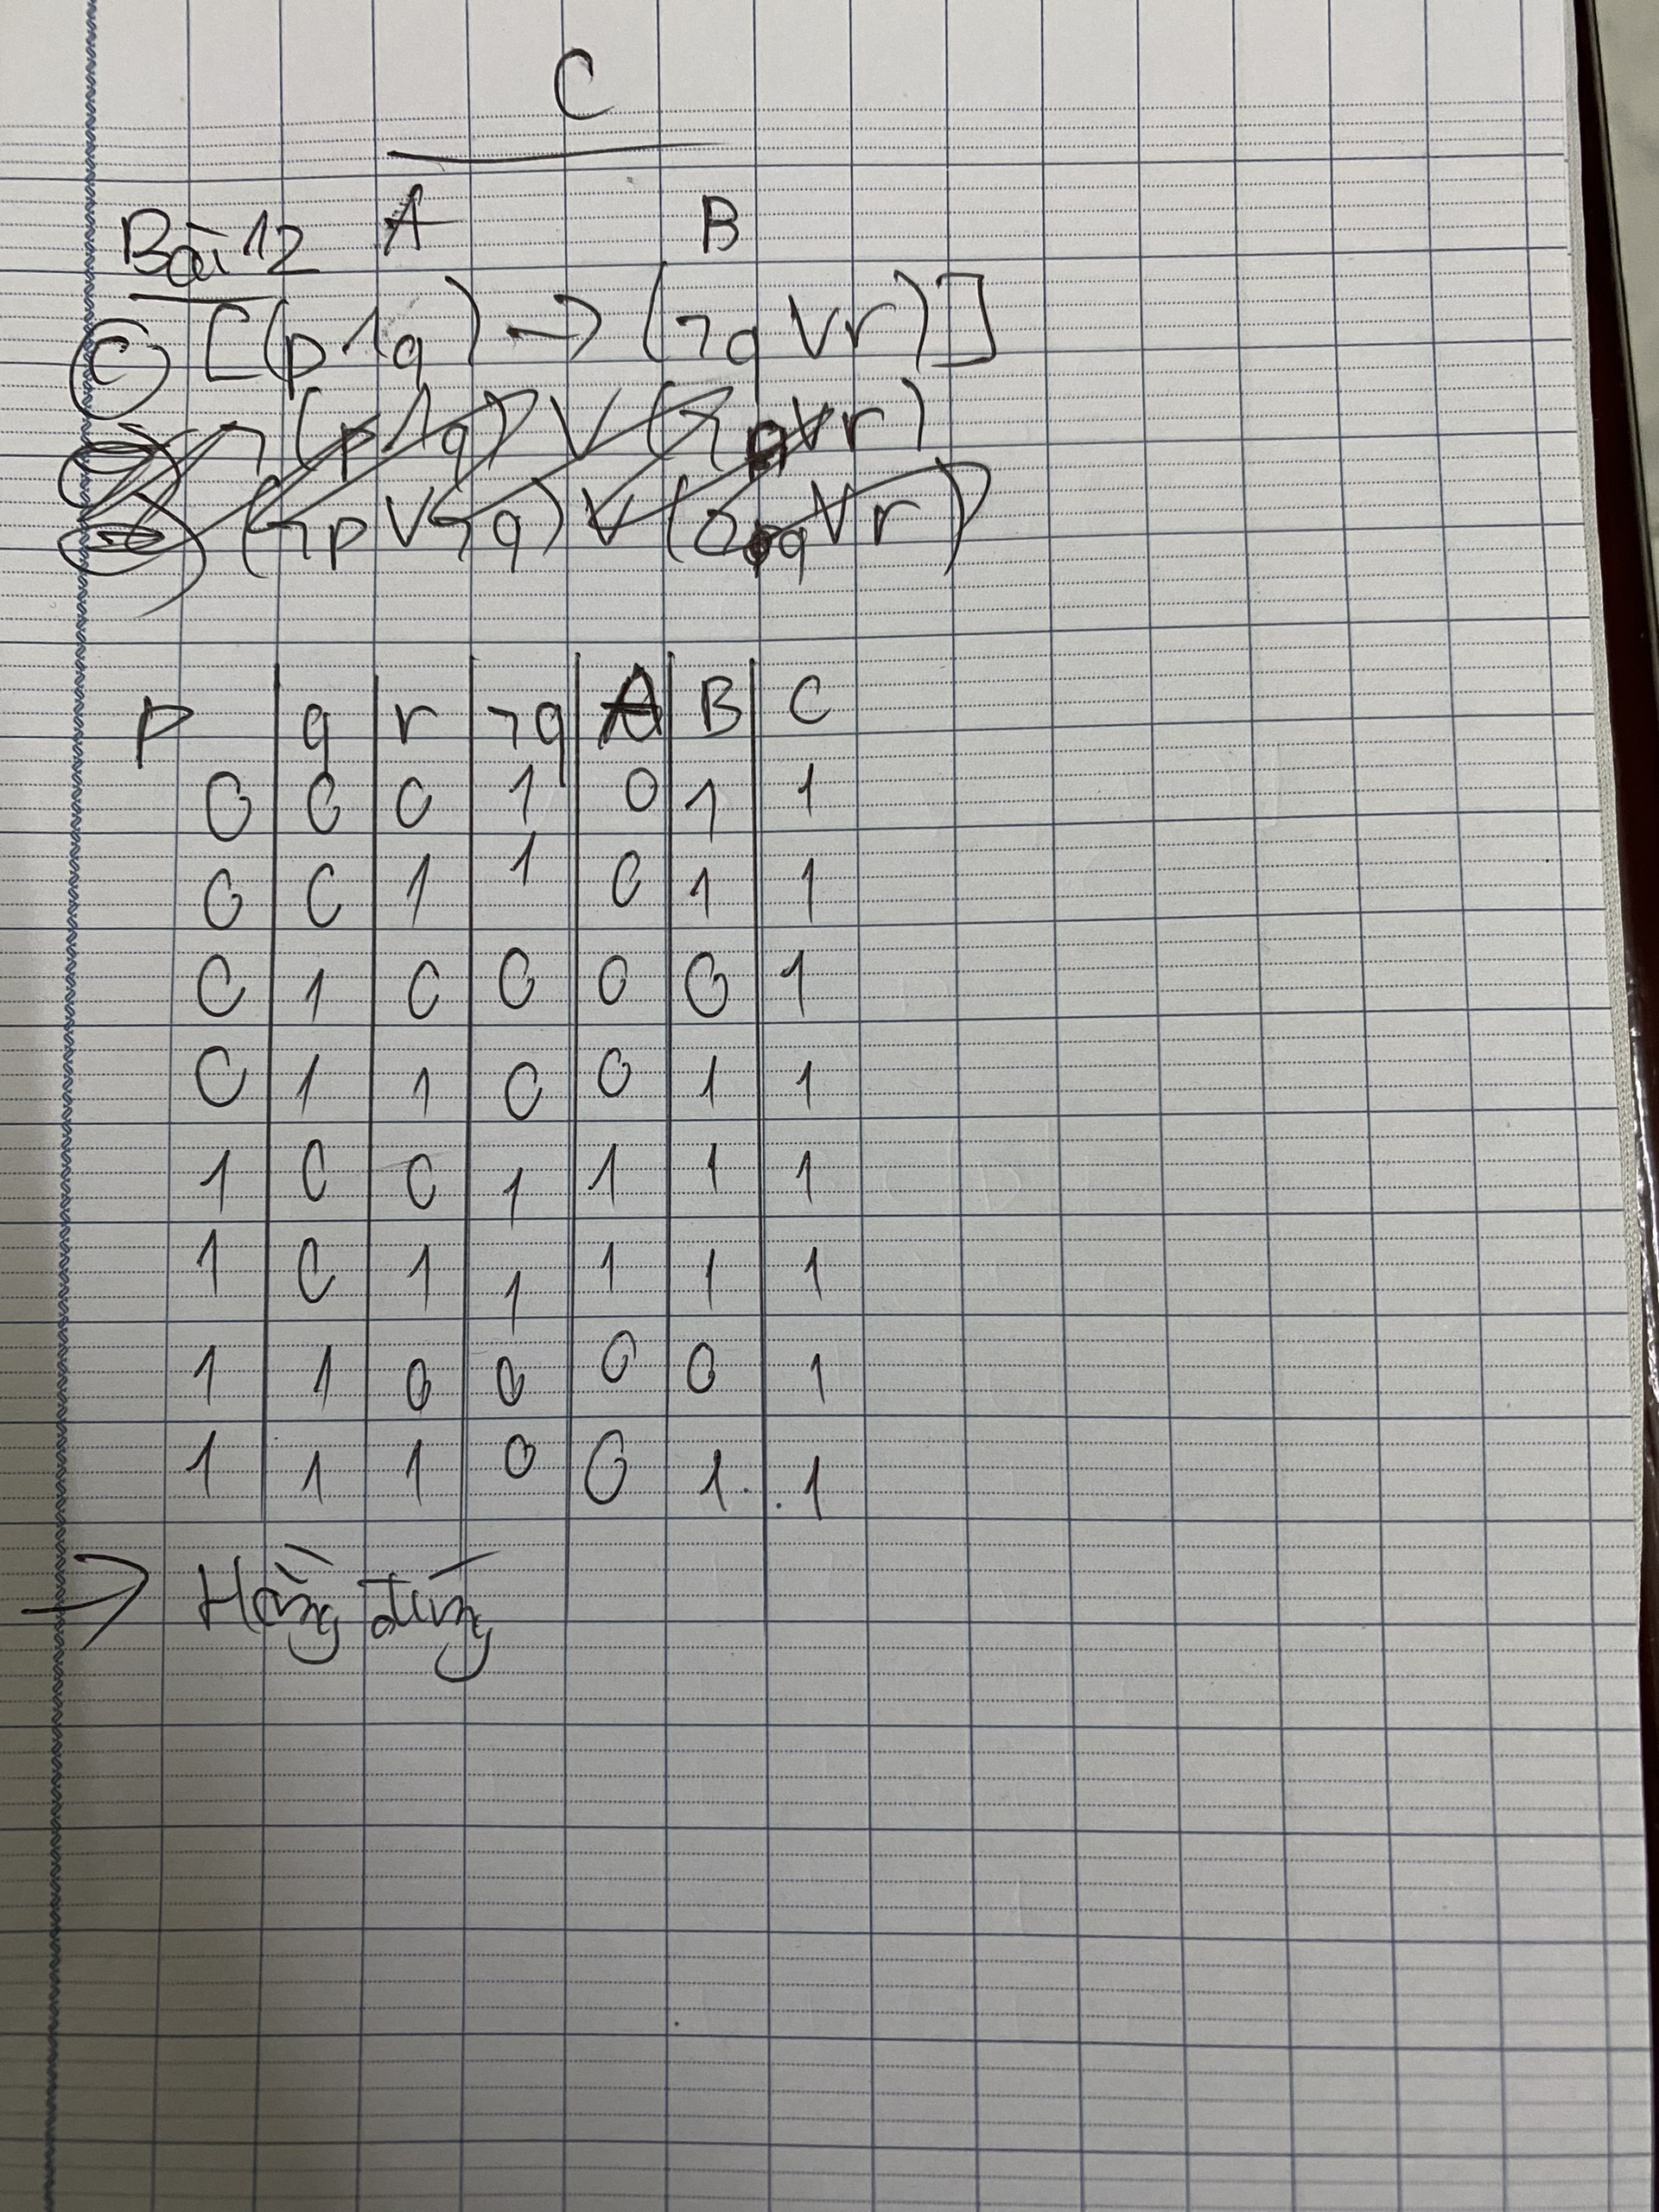 C
Bài 12 A B
c) [(p ∧ q) → (¬q ∨ r)]
¬(p ∧ q) ∨ (¬q ∨ r)
(¬p ∨ ¬q) ∨ (¬q ∨ r)
p q r ¬q A B C
0 0 0 1 0 1 1
0 0 1 1 0 1 1
0 1 0 0 0 0 1
0 1 1 0 0 1 1
1 0 0 1 1 1 1
1 0 1 1 1 1 1
1 1 0 0 0 0 1
1 1 1 0 0 1 1
→ Hằng đúng